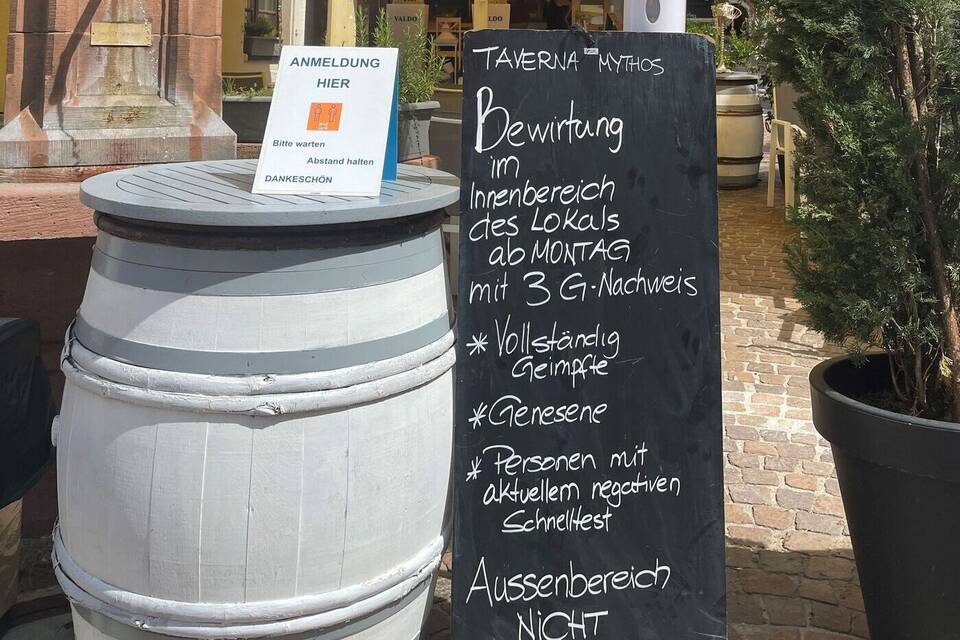 VALDO
ANMELDUNG
HIER
Bitte warten
Abstand halten
DANKESCHÖN
TAVERNA-MYTHOS
Bewirtung
im
Innenbereich
des Lokals
ab MONTAG
mit 3 G-Nachweis
* Vollständig
Geimpfte
* Genesene
* Personen mit
aktuellem negativen
Schnelltest
Aussenbereich
NICHT